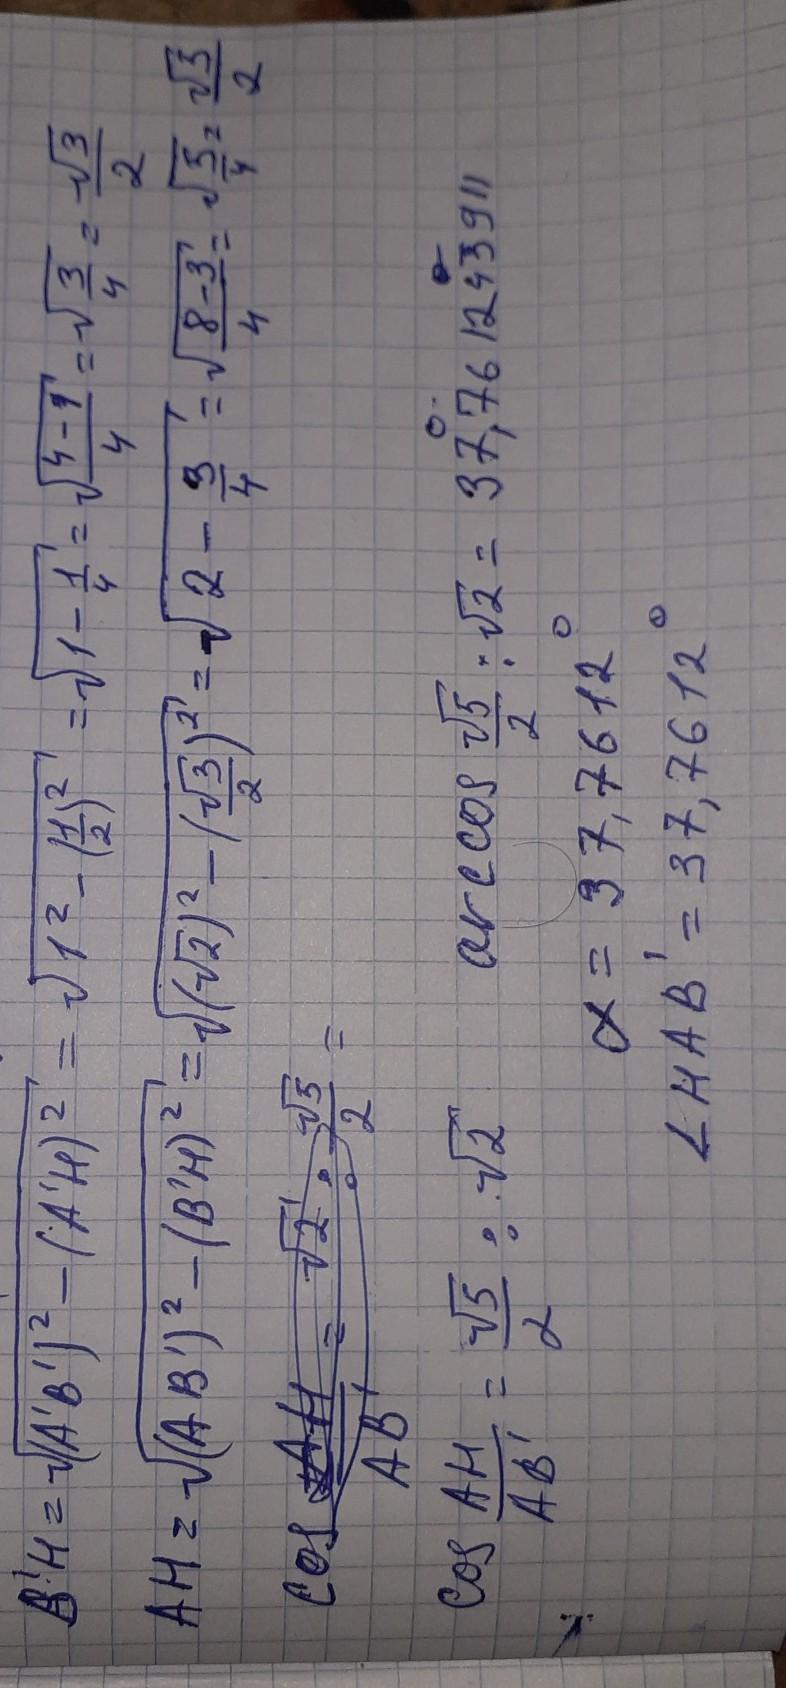 B'H = √((A'B')² - (A'H)²) = √(1² - (1/2)²) = √(1 - 1/4) = √((4-1)/4) = √(3/4) = √3/2
AH = √((AB')² - (B'H)²) = √((√2)² - (√3/2)²) = √(2 - 3/4) = √((8-3)/4) = √(5/4) = √5/2
cos AH/AB' = √2 : √5/2 =
cos AH/AB' = √5/2 : √2 arccos √5/2 : √2 = 37,7612439°
α = 37,7612°
∠HAB' = 37,7612°